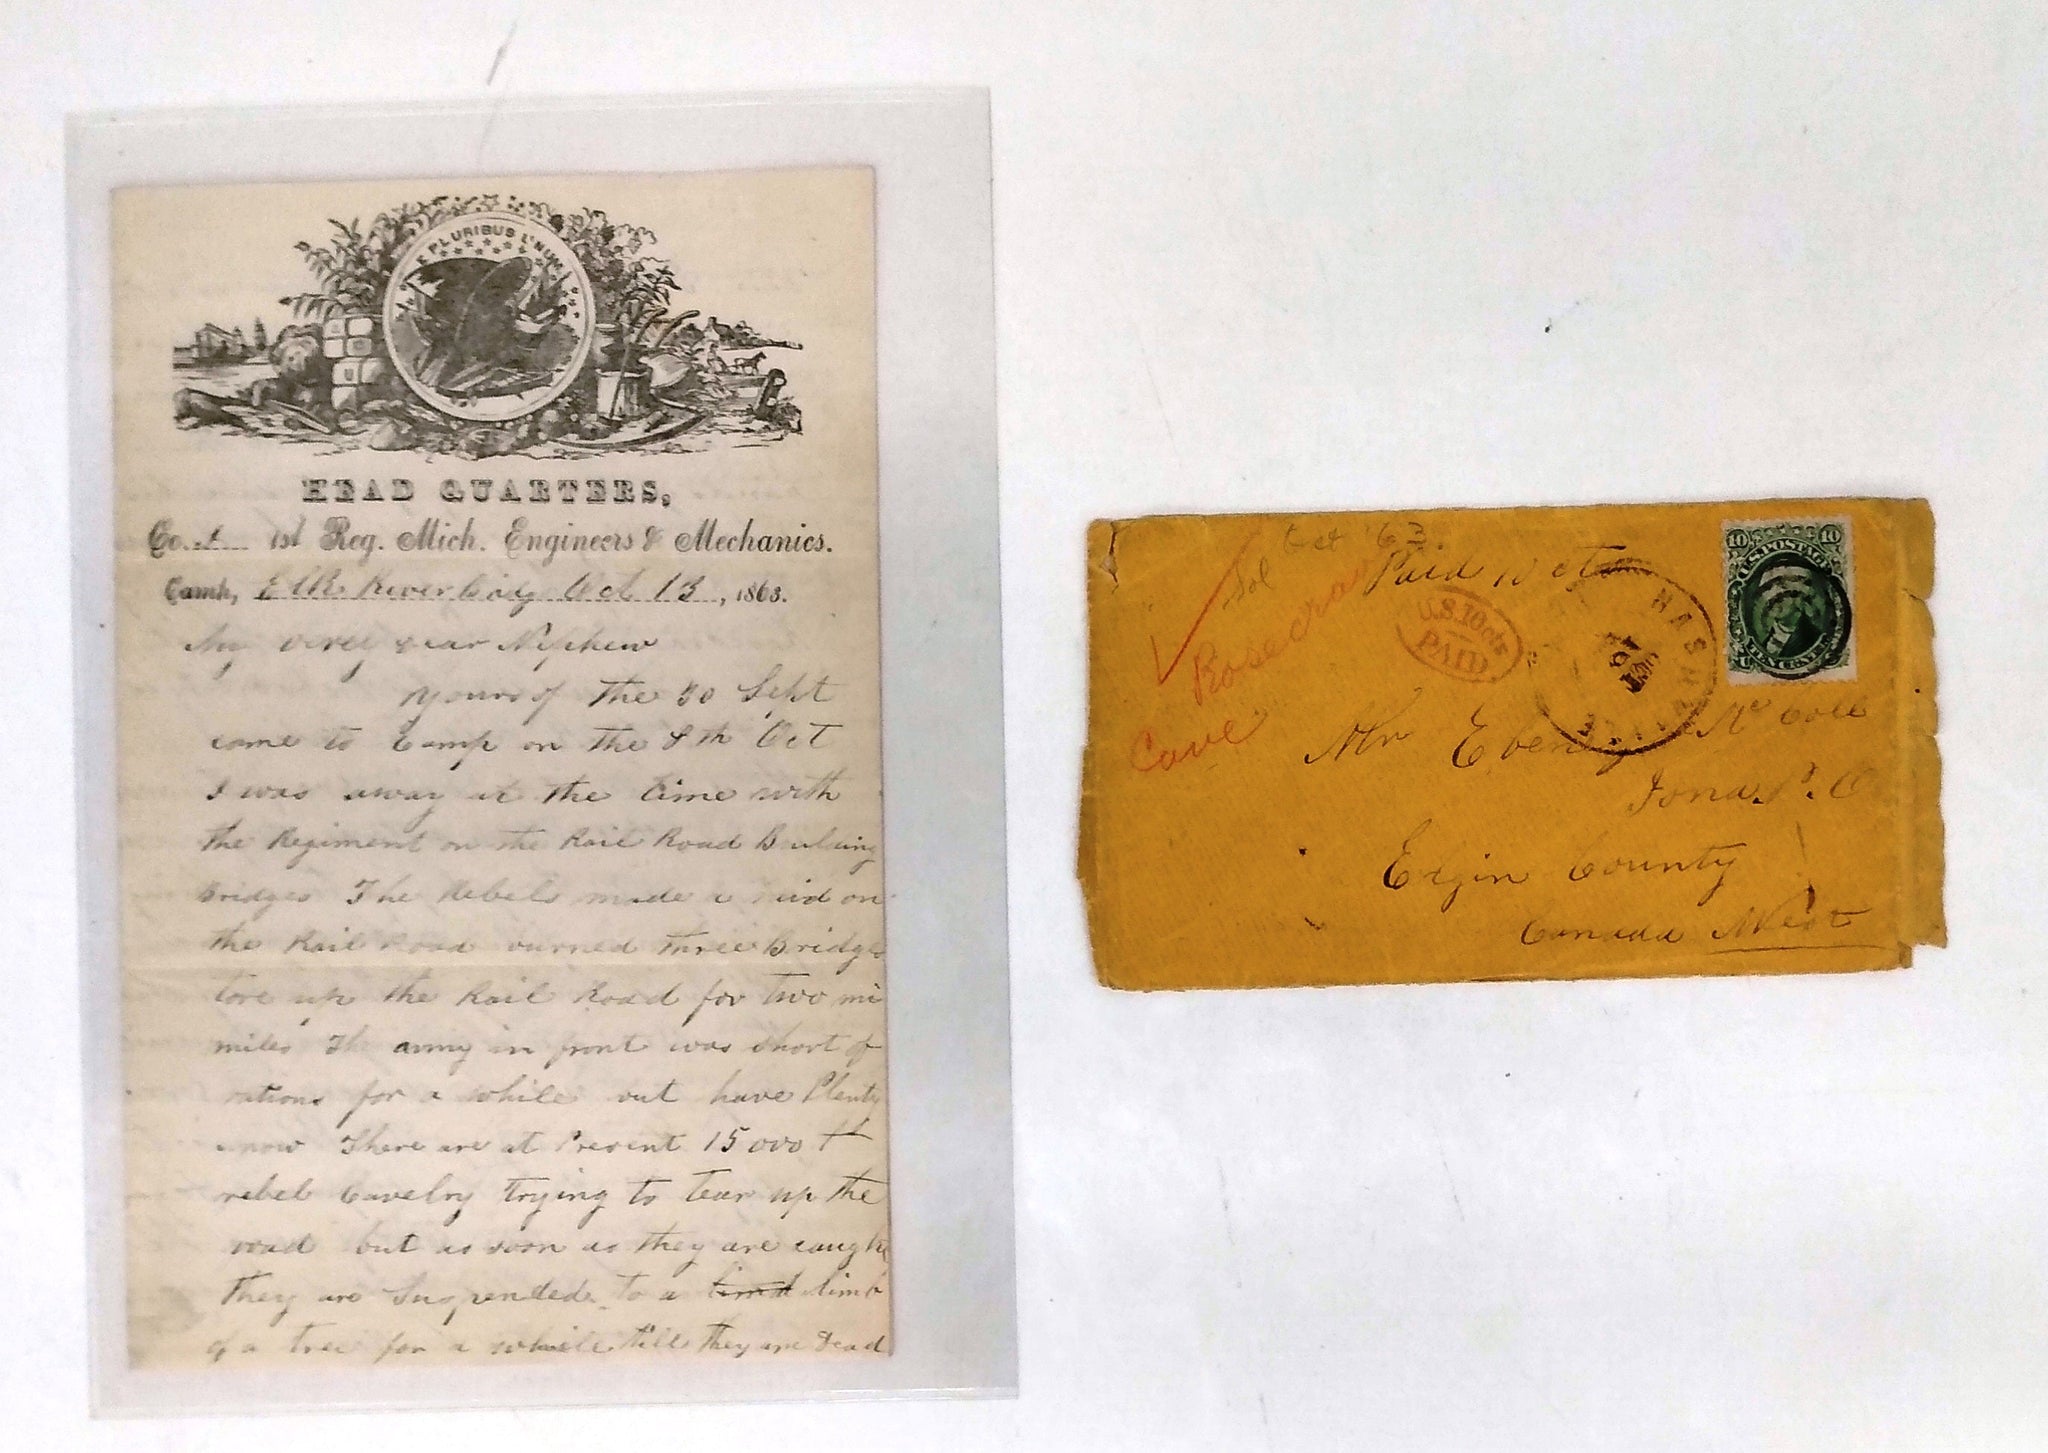 E PLURIBUS UNUM
HEAD QUARTERS,
Co. 1st Reg. Mich. Engineers & Mechanics.
Camp, Elk River Oct 13, 1863.
My verey dear Nephew
Yours of the 30 Sept
came to Camp on the 8th Oct
I was away at the time with
the Regiment on the Rail Road Bulding
Bridges The Rebels made a raid on
the Rail Road burned three Bridges
tore up the Rail Road for two mi
miles The army in front was short of
rations for a while but have Plenty
now There are at Present 15000 th
rebel Cavelry trying to tear up the
road but as soon as they are caught
they are Suspended to a limb
of a tree for a whiele till they are dead
Oct '63
Sol
Paid 10 cts
Rosecrans
Cave
U.S. 10 cts
PAID
NASHVILLE
OCT
10 10
U.S. POSTAGE
TEN CENTS
Mr Ebenz McCole
Iona P. O
Elgin County
Canada West